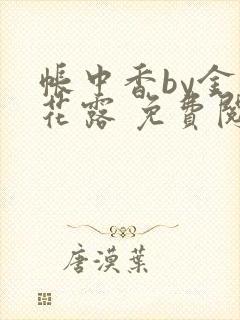 帳中香by金
花露 免費閱
唐漠葉